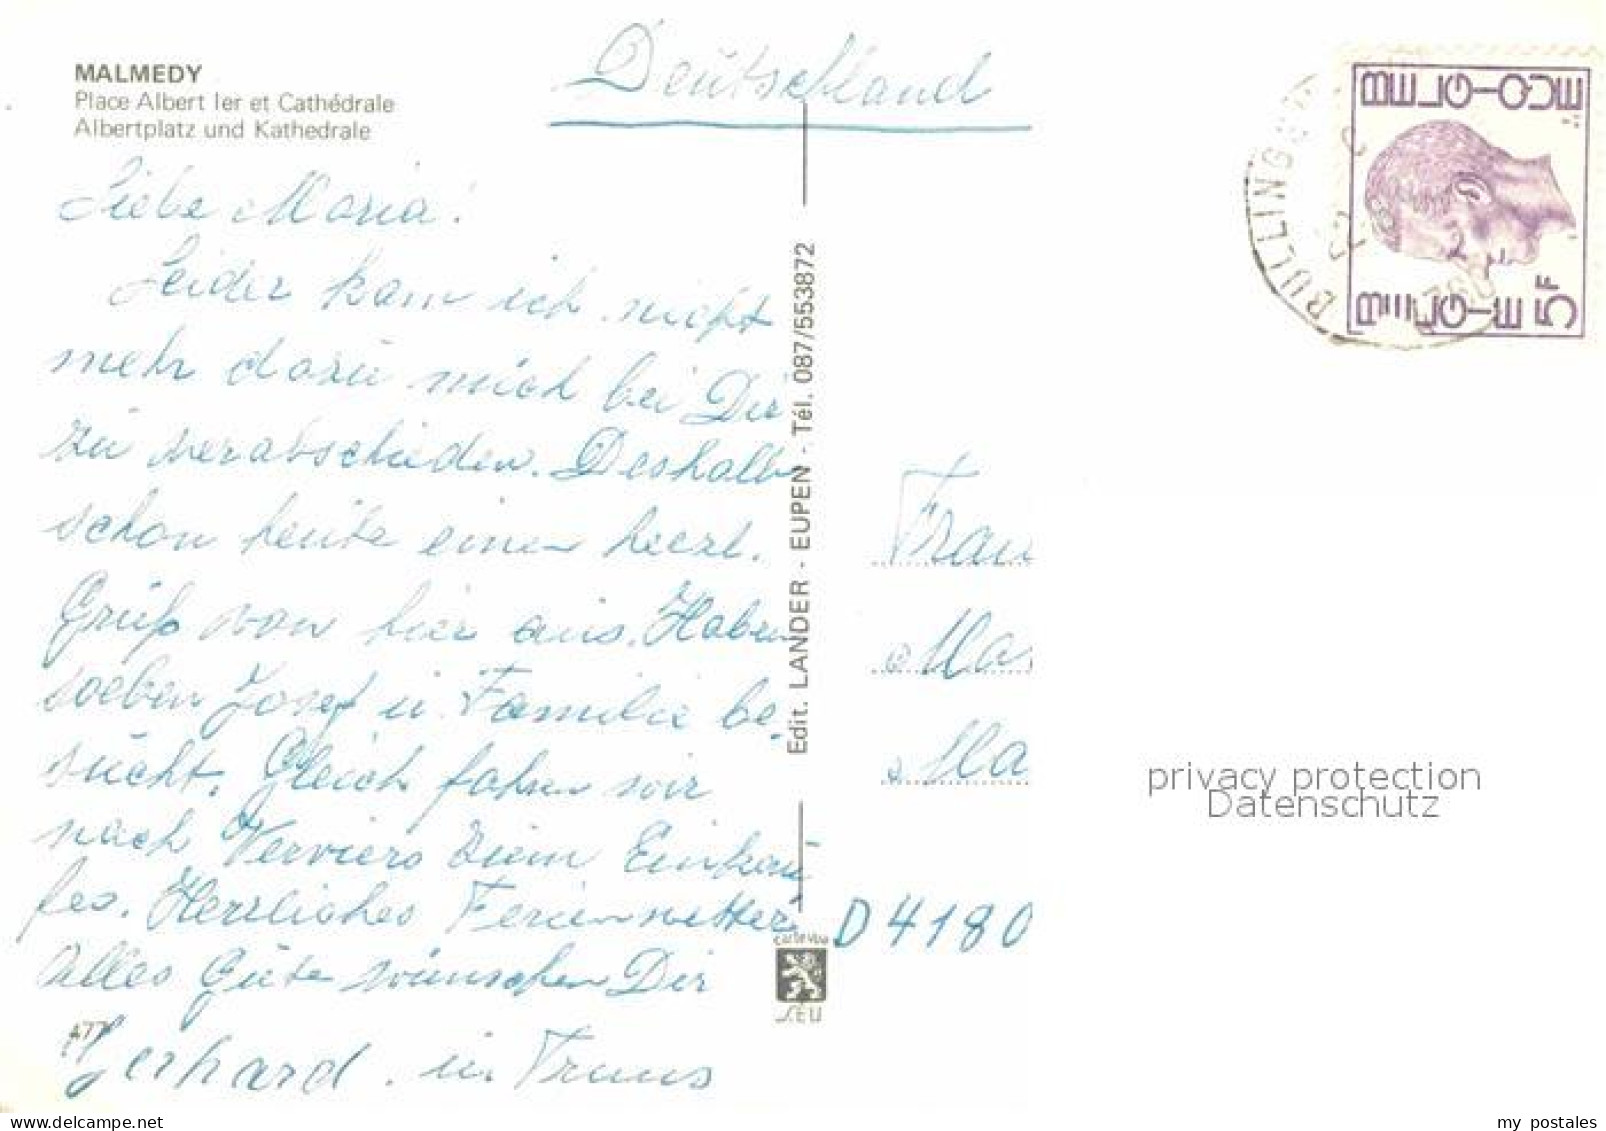 MALMEDY
Place Albert Ier et Cathédrale
Albertplatz und Kathedrale
Deutschland
Liebe Maria!
Leider kam ich nicht
mehr dazu mich bei Dir
zu verabschieden. Deshalb
schon heute einen herzl.
Gruß von hier aus. Haben
soeben Josef u. Familie be-
sucht. Gleich fahren wir
nach Verviers zum Einkau
fen. Herrliches Ferienwetter
Alles Gute wünschen Dir
Gerhard. u.
Edit. LANDER - EUPEN - Tél. 087/553872
carte vue
S.E.U
BELGIQUE
BELGIE 5F
BULLINGEN
Frau
Ma
Ma
D 4180
privacy protection
Datenschutz
my postales